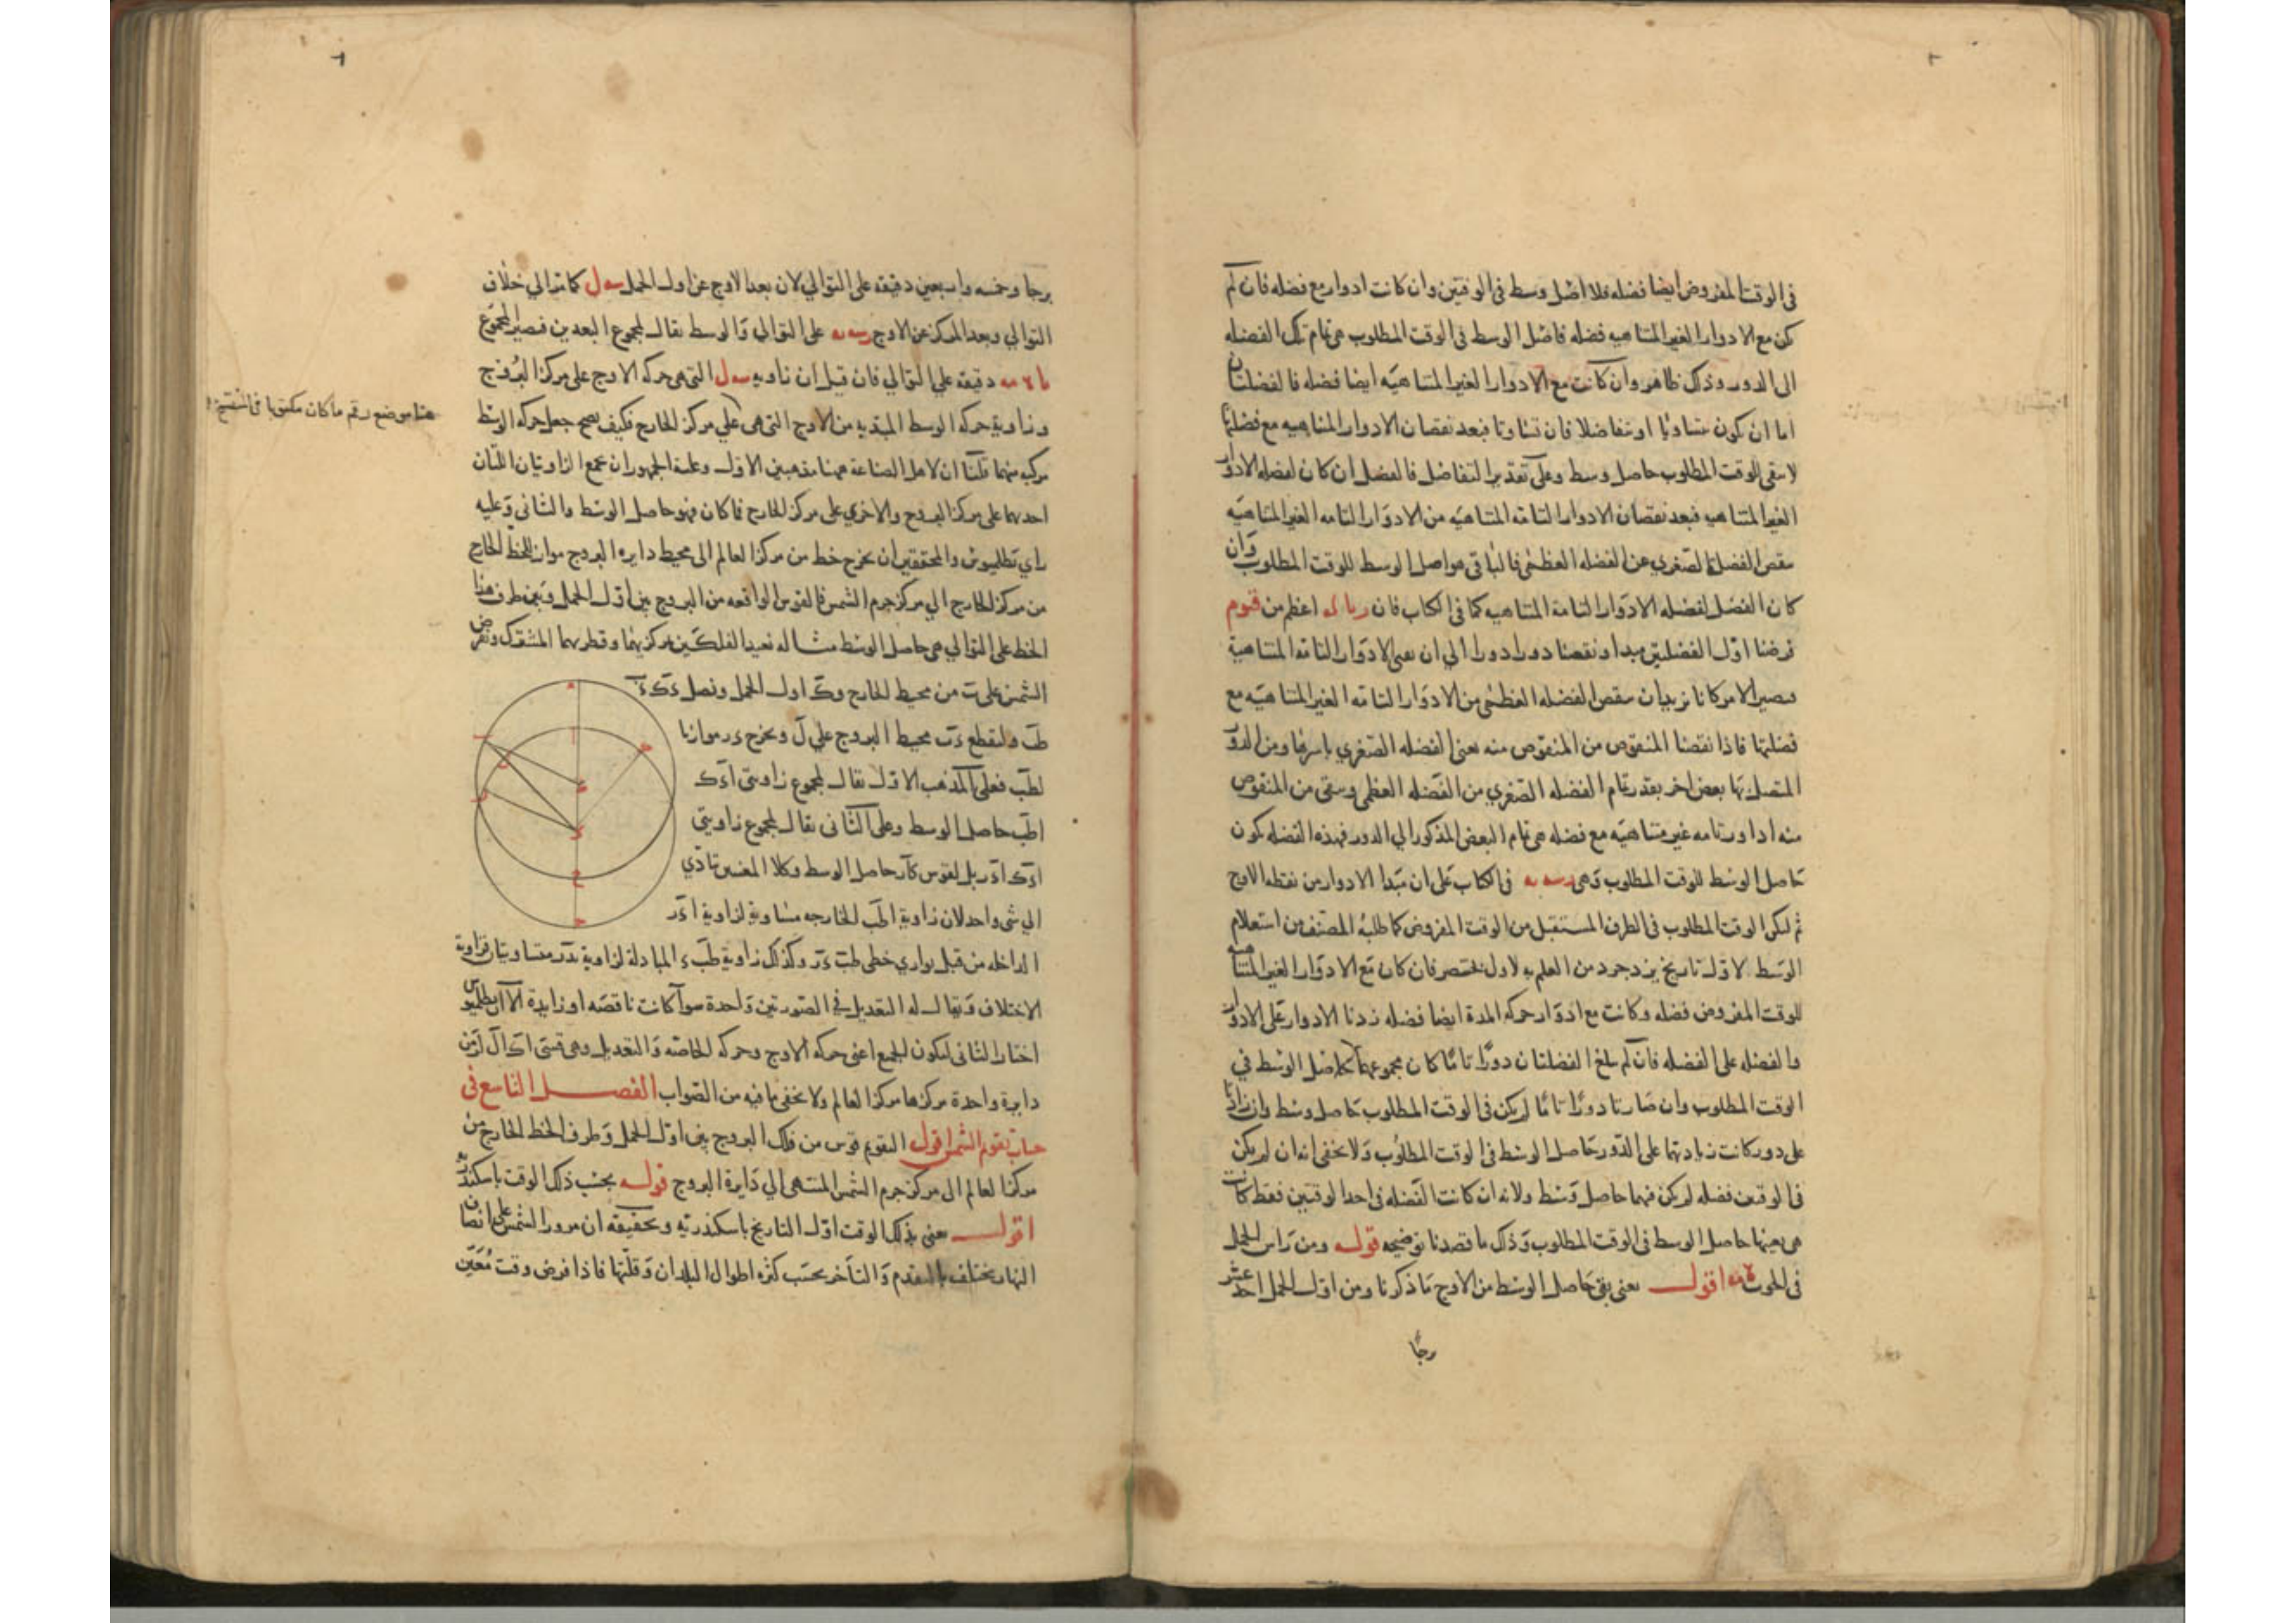 فى الوقت المفروض ايضا فضله فلا اصل وسط فى الوقتين وان كانت ادوار مع فضله فان لم
يكن مع الادوار الغير المتناهيه فضله فاصل الوسط فى الوقت المطلوب هى تمام تلك الفضله
الى الدور وذلك ظاهر وان كانت مع الادوار الغير المتناهيه ايضا فضله فالفضلتان
اما ان يكون متساويا او متفاضلا فان تساوتا فبعد نقصان الادوار المتناهيه مع فضلتها
لا يبقى للوقت المطلوب حاصل وسط وعلى تقدير التفاضل فالفضل ان كان لفضله الادوار
الغير المتناهيه فبعد نقصان الادوار التامه المتناهيه من الادوار التامه الغير المتناهيه
ينقص الفضله الصغرى عن الفضله العظمى فالباقى هو اصل الوسط للوقت المطلوب وان
كان الفضل لفضله الادوار التامة المتناهيه كما فى الكتاب فان اعظم من
فرضنا اول الفضلتين مبدا ونقصنا دورا دورا الى ان الادوار التامه المتناهية
فيصير الامر كانا نريد ان ينقص الفضله العظمى من الادوار التامه الغير المتناهيه مع
فضلتها فاذا نقصنا المنقوص من المنقوص منه يعنى الفضله الصغرى باسرها ومن الدور
المتصل بها بعض اخر بقدر تمام الفضله الصغرى من الفضله العظمى وبقى من المنقوص
منه ادوار تامه غير متناهيه مع فضله هى تمام البعض المذكور الى الدور فهذه الفضله يكون
حاصل الوسط للوقت المطلوب وهى فى الكتاب على ان مبدا الادوار من نقطه الاوج
ثم ليكن الوقت المطلوب فى الطرف المستقبل من الوقت المفروض كما طلبه المصنف من استعلام
الوسط لاول تاريخ يزدجرد من العلم به لاول فان كان مع الادوار الغير المتناهيه
للوقت المفروض فضله وكانت مع ادوار حركه المدة ايضا فضله زدنا الادوار على الادوار
والفضله على الفضله فان لم يبلغ الفضلتان دورا تاما كان مجموعهما حاصل الوسط في
الوقت المطلوب وان صارتا دورا تاما لم يكن فى الوقت المطلوب حاصل وسط وان زادتا
على دور كانت زيادتهما على الدور حاصل الوسط فى الوقت المطلوب ولا يخفى انه ان لم يكن
فى الوقتين فضله لم يكن فيهما حاصل وسط ولانه ان كانت الفضله فى احد الوقتين فقط كانت
هى بعينها حاصل الوسط فى الوقت المطلوب وذلك ما قصدنا توضيحه قوله ومن راس الحمل
فى الحوت اقول يعنى بقى حاصل الوسط من الاوج ما ذكرنا ومن اول الحمل احد عشر
برجا
برجا وخمسه واربعين دقيقه على التوالي لان بعد الاوج عن اول الحمل كما تر الي خلاف
التوالي وبعد المركز عن الاوج على التوالي والوسط يقال لمجموع البعدين فيصير المجموع
دقيقه على التوالي فان قيل ان زاويه التى هى حركه الاوج على مركز البروج
وزاوية حركه الوسط المبتديه من الاوج التى هى على مركز الخارج فكيف يصح جعل حركه الوسط
مركبه منهما قلنا ان لاهل الصناعة ههنا مذهبين الاول وعليه الجمهور ان يجمع الزاويتان اللتان
احدهما على مركز البروج والاخرى على مركز الخارج فما كان فهو حاصل الوسط والثانى وعليه
راي بطليموس والمحققين ان يخرج خط من مركز العالم الى محيط دايره البروج مواز للخط الخارج
من مركز الخارج الي مركز جرم الشمس فالقوس الواقعه من البروج بين اول الحمل وبين طرف هذا
الخط على التوالي هى حاصل الوسط مثاله نعيد الفلكين بمركزيهما وقطرهما المشترك ونفرض
الشمس على ب من محيط الخارج وك اول الحمل ونصل
وليقطع محيط البروج على ل ونخرج موازيا
لطب فعلى المذهب الاول يقال لمجموع زاويتى
اطب حاصل الوسط وعلى الثانى يقال لمجموع زاويتي
بل لقوس حاصل الوسط وكلا المعنيين تؤدي
الي شى واحد لان زاوية اطب الخارجه مساوية لزاوية
الداخله من قبل توازى خطى وكذلك زاوية المبادلة لزاوية متساويتان فزاوية
الاختلاف ويقال له التعديل فى الصورتين واحدة سوآ كانت ناقصه او زايدة الا ان بطلميوس
اختار الثانى ليكون الجميع اعنى حركه الاوج وحركه الخاصه والتعديل وهى قسى من
دايرة واحدة مركزها مركز العالم ولا يخفى ما فيه من الصواب الفصل التاسع فى
حساب تقويم الشمس اقول التقويم قوس من فلك البروج بين اول الحمل وطرف الخط الخارج من
مركز العالم الى مركز جرم الشمس المنتهى الي دايرة البروج قوله بحسب ذلك الوقت باسكندريه
اقول يعنى بذلك الوقت اول التاريخ باسكندريه وتحقيقه ان مرور الشمس على انصاف
النهار يختلف بالتقدم والتاخر بحسب كثره اطوال البلدان وقلتها فاذا فرض وقت معين
هذا موضع رقم ما كان مكتوبا فى النسخة